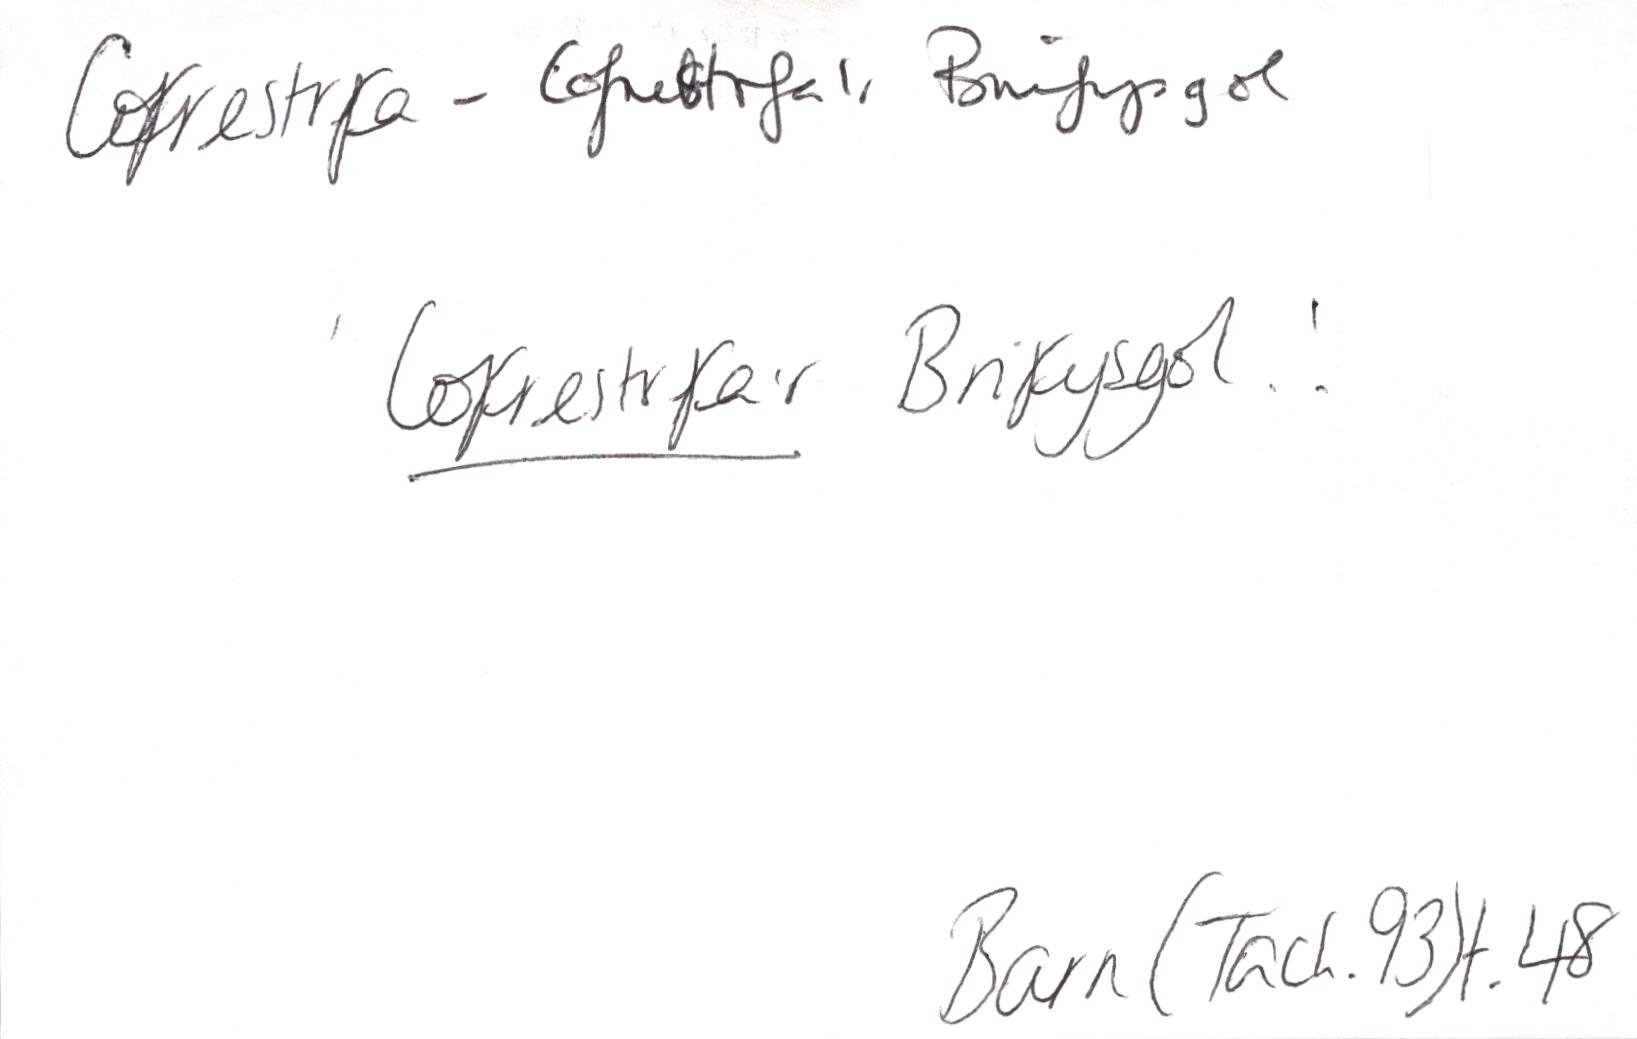 Cofrestrfa - Cofrestrfa'r Brifysgol
'Cofrestrfa'r Brifysgol.'.
Barn (Tach. 93) t. 48